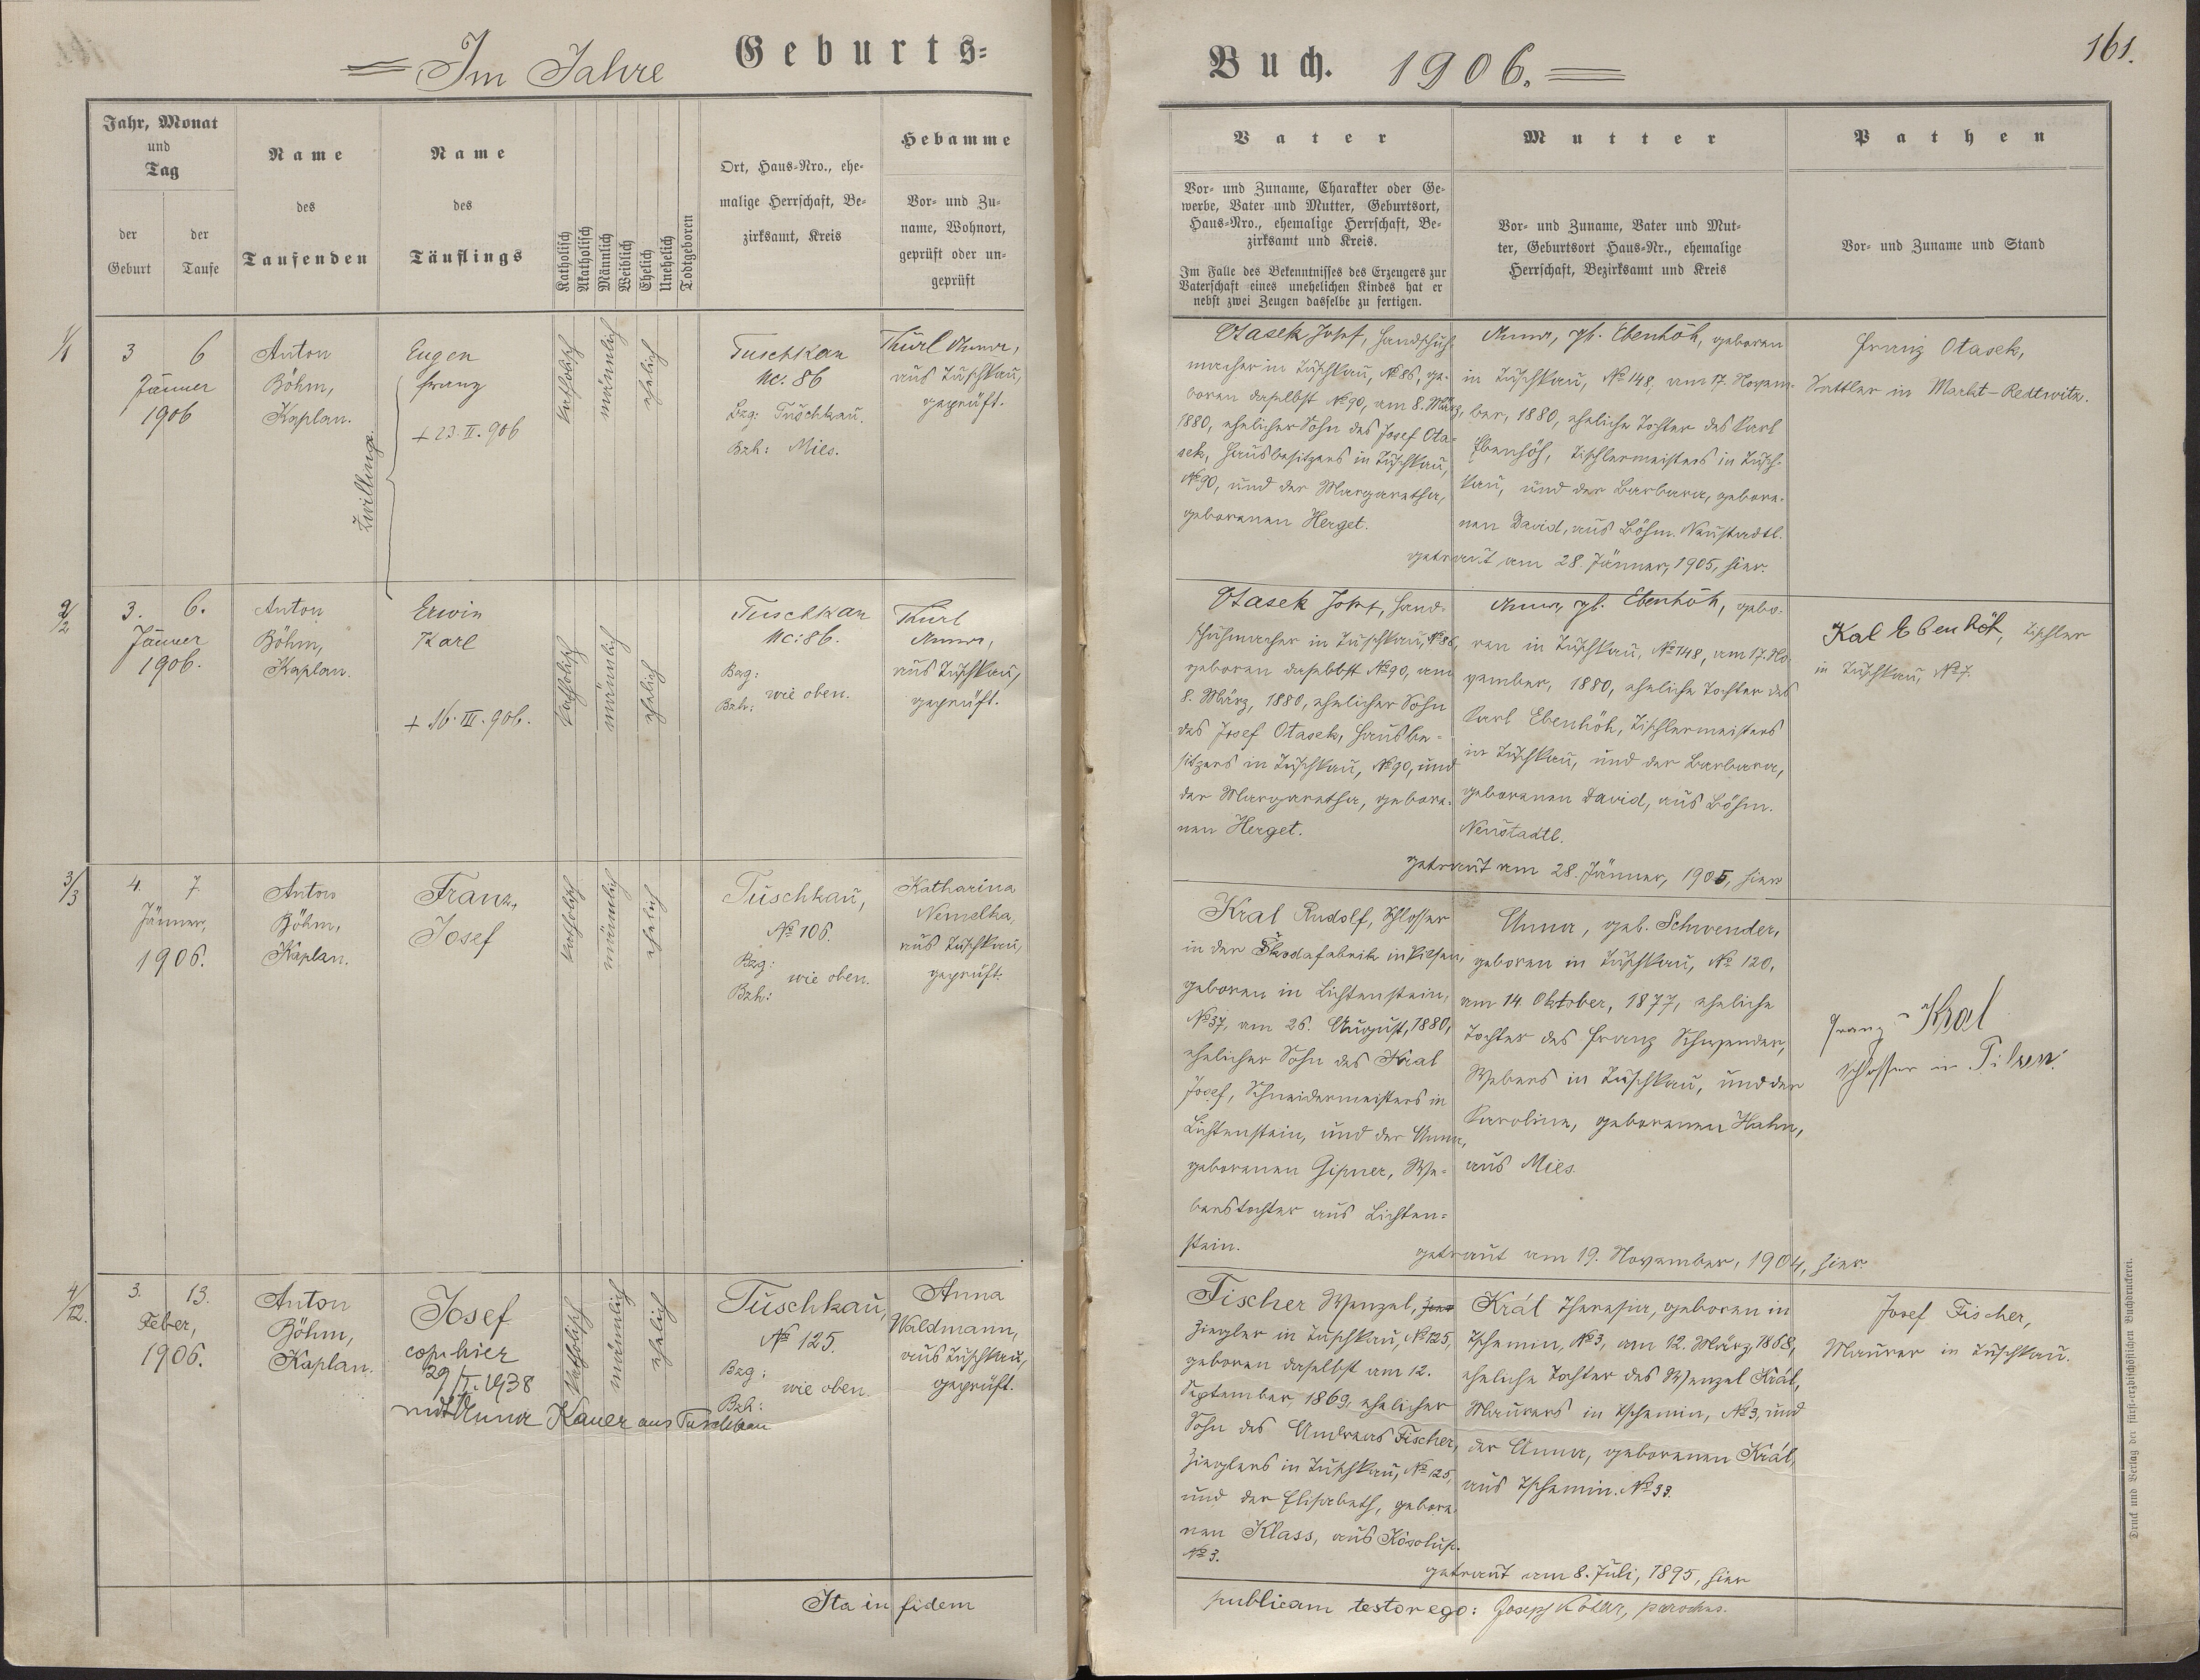 = Im Jahre Geburts=
Jahr, Monat
und
Tag
der Geburt
der Taufe
Name
des
Taufenden
Name
des
Täuflings
Katholisch
Akatholisch
Männlich
Weiblich
Ehelich
Unehelich
Todtgeboren
Ort, Haus-Nro., ehe-
malige Herrschaft, Be-
zirksamt, Kreis
Hebamme
Vor- und Zu-
name, Wohnort,
geprüft oder un-
geprüft
1/1
3 6
Jänner
1906
Anton
Böhm,
Kaplan.
Zwillinge.
Eugen
Franz
+ 23. II. 906
katholisch
männlich
ehelich
Tuschkau
Nc: 86
Bzg: Tuschkau.
Bzh: Mies.
Thürl Anna,
aus Tuschkau,
geprüft.
2/2
3. 6.
Jänner
1906.
Anton
Böhm,
Kaplan.
Erwin
Karl
+ 16. III. 906.
katholisch
männlich
ehelich
Tuschkau
Nc: 86.
Bzg:
Bzh: wie oben.
Thürl
Anna,
aus Tuschkau,
geprüft.
3/3
4. 7.
Jänner,
1906.
Anton
Böhm,
Kaplan.
Franz,
Josef
katholisch
männlich
ehelich
Tuschkau,
№ 106.
Bzg:
Bzh: wie oben.
Katharina
Nemelka,
aus Tuschkau,
geprüft.
4/12.
3. 13.
Feber,
1906.
Anton
Böhm,
Kaplan.
Josef
cop. hier
29/I. 1938
mit Anna Kauer aus Tuschkau
katholisch
männlich
ehelich
Tuschkau,
№ 125.
Bzg:
Bzh: wie oben.
Anna
Waldmann,
aus Tuschkau,
geprüft.
Ita in fidem
Buch. 1906. =
161.
Vater
Vor- und Zuname, Charakter oder Ge-
werbe, Vater und Mutter, Geburtsort,
Haus-Nro., ehemalige Herrschaft, Be-
zirksamt und Kreis.
Im Falle des Bekenntnisses des Erzeugers zur
Vaterschaft eines unehelichen Kindes hat er
nebst zwei Zeugen dasselbe zu fertigen.
Mutter
Vor- und Zuname, Vater und Mut-
ter, Geburtsort Haus-Nr., ehemalige
Herrschaft, Bezirksamt und Kreis
Pathen
Vor- und Zuname und Stand
Otasek Josef, Handschuh-
macher in Tuschkau, № 86, ge-
boren daselbst № 90, am 8. März,
1880, ehelicher Sohn des Josef Ota-
sek, Hausbesitzers in Tuschkau,
№ 90, und der Margaretha,
geborenen Herget.
Anna, gb. Ebenhöh, geboren
in Tuschkau, № 148, am 17. Novem-
ber, 1880, eheliche Tochter des Karl
Ebenhöh, Tischlermeisters in Tusch-
kau, und der Barbara, gebore-
nen David, aus Böhm. Neustadtl.
getraut am 28. Jänner, 1905, hier.
Franz Otasek,
Sattler in Markt-Redtwitz.
Otasek Josef, Hand-
schuhmacher in Tuschkau, № 86,
geboren daselbst № 90, am
8. März, 1880, ehelicher Sohn
des Josef Otasek, Hausbe-
sitzers in Tuschkau, № 90, und
der Margaretha, gebore-
nen Herget.
Anna, gb. Ebenhöh, gebo-
ren in Tuschkau, № 148, am 17. No-
vember, 1880, eheliche Tochter des
Karl Ebenhöh, Tischlermeisters
in Tuschkau, und der Barbara,
geborenen David, aus Böhm.
Neustadtl.
getraut am 28. Jänner, 1905, hier
Kal Ebenhöh, Tischler
in Tuschkau, № 7.
Kral Rudolf, Schlosser
in der Škodafabrik in Pilsen,
geboren in Lichtenstein,
№ 37, am 26. August, 1880,
ehelicher Sohn des Kral
Josef, Schneidermeisters in
Lichtenstein, und der Anna,
geborenen Gipner, We-
berstochter aus Lichten-
stein.
Anna, geb. Schwender,
geboren in Tuschkau, № 120,
am 14. Oktober, 1877, eheliche
Tochter des Franz Schwender,
Webers in Tuschkau, und der
Karoline, geborenen Hahn,
aus Mies
getraut am 19. November, 1904, hier
Franz Kral
Schlosser in Pilsen.
Fischer Wenzel,
Ziegler in Tuschkau, № 125,
geboren daselbst am 12.
September, 1869, ehelicher
Sohn des Andreas Fischer,
Zieglers in Tuschkau, № 125,
und der Elisabeth, gebore-
nen Klass, aus Kosolup.
№ 3.
Král Theresia, geboren in
Tschemin, № 3, am 12. März, 1868,
eheliche Tochter des Wenzel Král,
Maurers in Tschemin, № 3, und
der Anna, geborenen Král,
aus Tschemin. № 33.
getraut am 8. Juli, 1895, hier
Josef Fischer,
Maurer in Tuschkau.
publicam testor ego: Joseph parochus.
Druck und Verlag der fürst-erzbischöflichen Buchdruckerei.